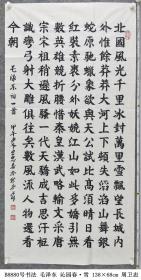 北國風光千里冰封萬里雪飄望長城內
外惟餘莽莽大河上下頓失滔滔山舞銀
蛇原馳蠟象欲與天公試比高須晴日看
紅裝素裹分外妖嬈江山如此多嬌引無
數英雄競折腰惜秦皇漢武略輸文采唐
宗宋祖稍遜風騷一代天驕成吉思汗祇
識彎弓射大雕俱往矣數風流人物還看
今朝 毛澤東詞一首 甲午年
B8880号书法 毛泽东 沁园春·雪 138×68cm 周卫志